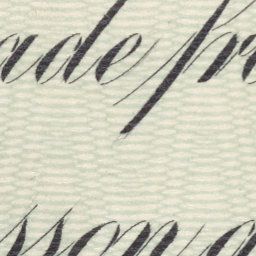 ade pr
sson a